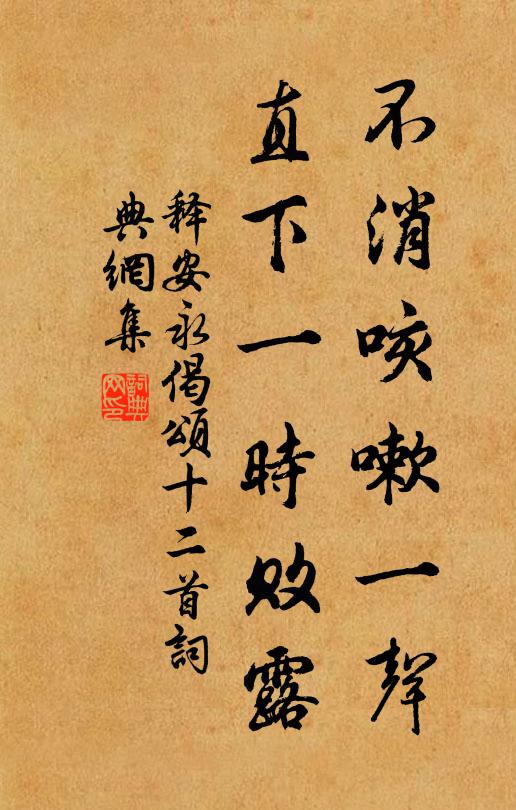 不消咳嗽一聲
直下一時敗露
释安永偈頌十二首詞
典網集
詞典
网印